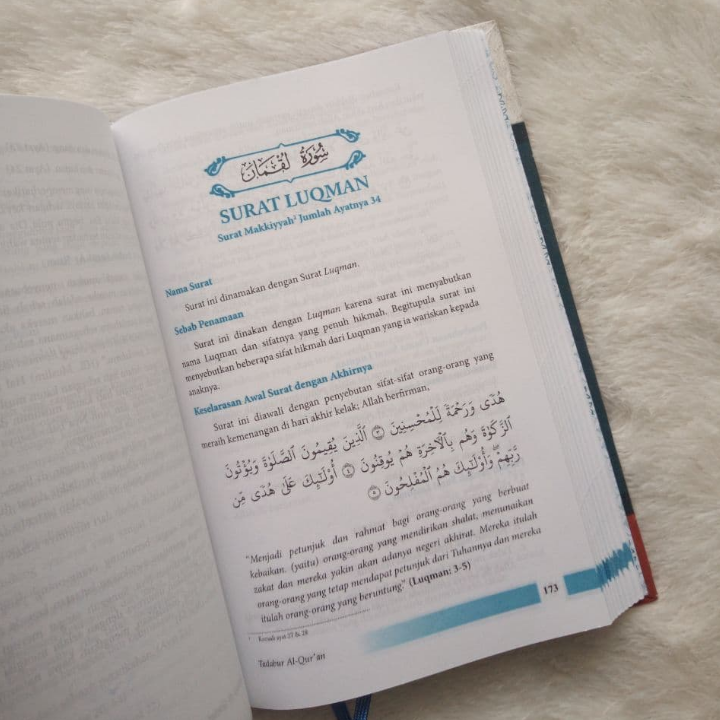 سُورَةُ لُقْمَانَ
SURAT LUQMAN
Surat Makkiyyah¹ Jumlah Ayatnya 34
Nama Surat
Surat ini dinamakan dengan Surat Luqman.
Sebab Penamaan
Surat ini dinakan dengan Luqman karena surat ini menyabutkan
nama Luqman dan sifatnya yang penuh hikmah. Begitupula surat ini
menyebutkan beberapa sifat hikmah dari Luqman yang ia wariskan kepada
anaknya.
Keselarasan Awal Surat dengan Akhirnya
Surat ini diawali dengan penyebutan sifat-sifat orang-orang yang
meraih kemenangan di hari akhir kelak; Allah berfirman,
هُدًى وَرَحْمَةً لِّلْمُحْسِنِينَ ٣ الَّذِينَ يُقِيمُونَ الصَّلَوٰةَ وَيُؤْتُونَ
الزَّكَوٰةَ وَهُم بِالْآخِرَةِ هُمْ يُوقِنُونَ ٤ أُولَٰئِكَ عَلَىٰ هُدًى مِّن
رَّبِّهِمْ ۖ وَأُولَٰئِكَ هُمُ الْمُفْلِحُونَ ٥
"Menjadi petunjuk dan rahmat bagi orang-orang yang berbuat
kebaikan. (yaitu) orang-orang yang mendirikan shalat, menunaikan
zakat dan mereka yakin akan adanya negeri akhirat. Mereka itulah
orang-orang yang tetap mendapat petunjuk dari Tuhannya dan mereka
itulah orang-orang yang beruntung" (Luqman: 3-5)
173
Kecuali ayat 27 & 28
Tadabur Al-Qur'an